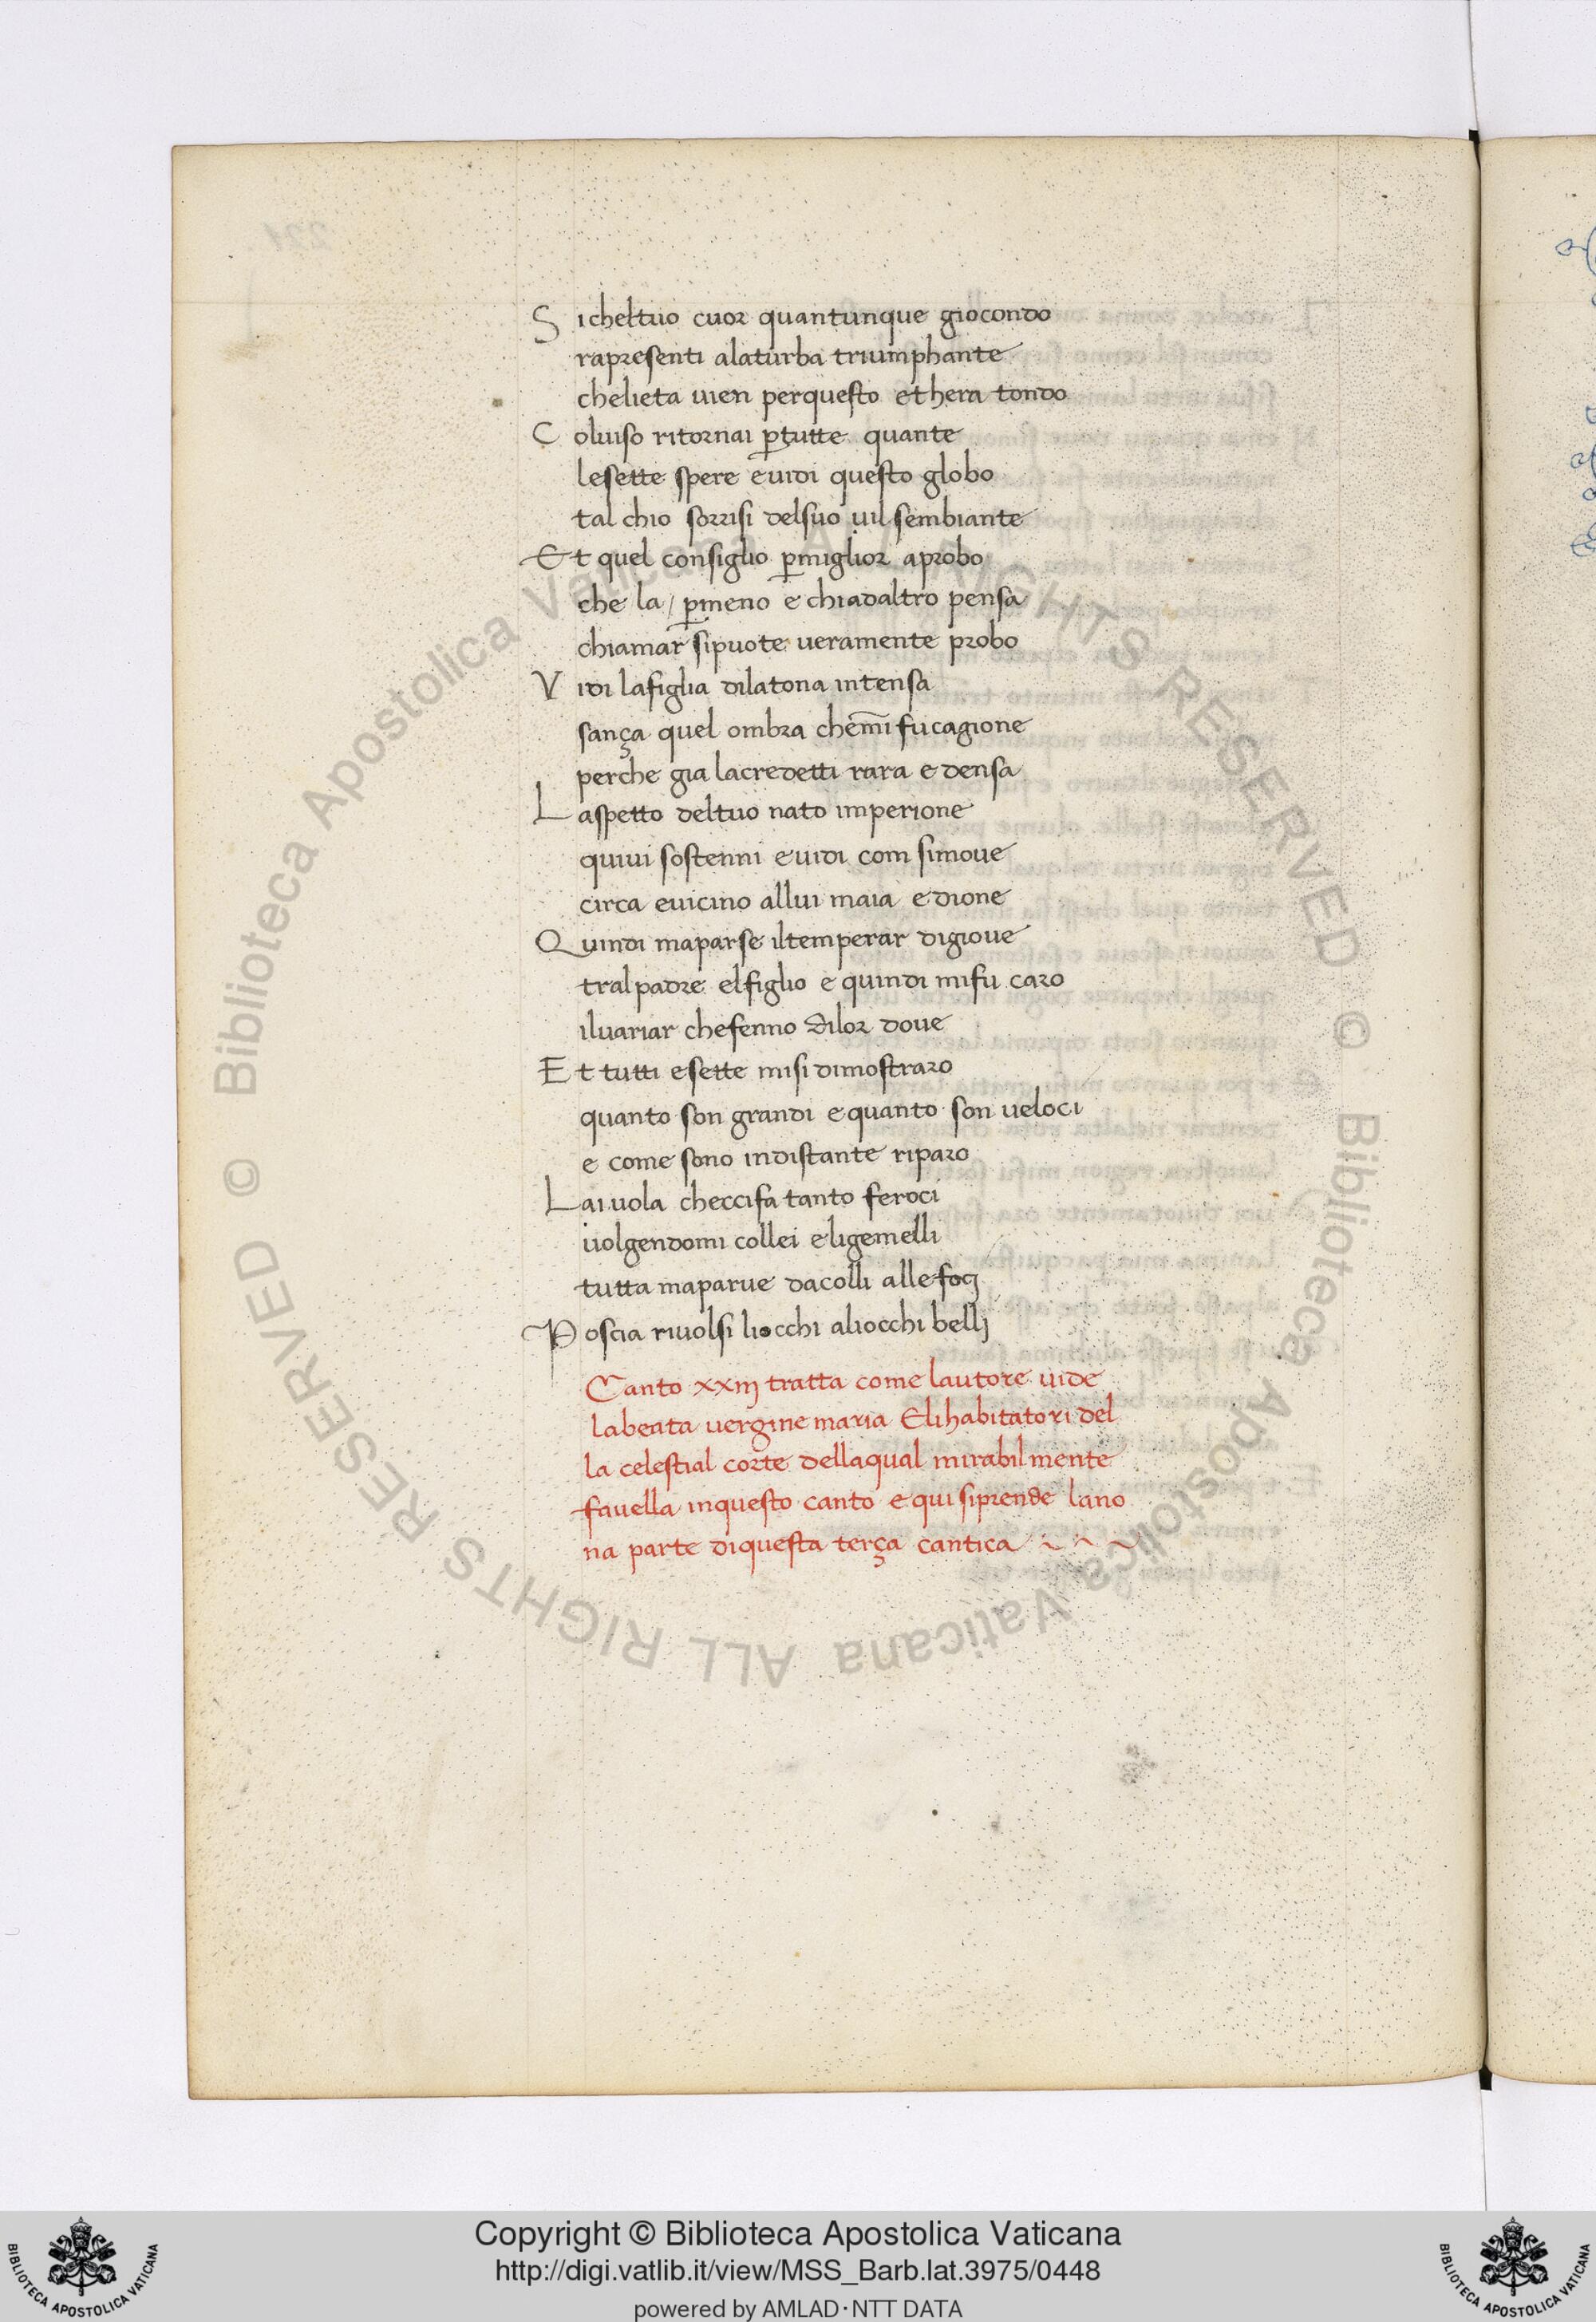 S icheltuo cuor quantunque giocondo
rapresenti alaturba triumphante
chelieta uien perquesto ethera tondo
C oluiso ritornai p̱tutte quante
lesette spere euidi questo globo
tal chio sorrisi delsuo uil sembiante
Et quel consiglio p̱miglior aprobo
che la / p̱meno e chiadaltro pensa
chiamar̄ sipuote ueramente probo
V idi lafiglia dilatona intensa
sança quel ombra chem̄i fu cagione
perche gia lacredetti rara e densa
L aspetto deltuo nato imperione
quiui sostenni euidi com simoue
circa euicino allui maia edione
Q uindi maparse iltemperar digioue
tralpadre elfiglio e quindi mifu caro
iluariar chefenno dilor doue
E t tutti esette misi dimostraro
quanto son grandi equanto son ueloci
e come sono indistante riparo
L aiuola checcifa tanto feroci
uolgendomi collei eligemelli
tutta maparue dacolli allefocj
P oscia riuolsi liocchi aliocchi bellj
Canto xxiij tratta come lautore uide
labeata uergine maria Elihabitatori del
la celestial corte dellaqual mirabilmente
fauella inquesto canto e qui siprende lano
na parte diquesta terça cantica
© Biblioteca Apostolica Vaticana ALL RIGHTS RESERVED © Biblioteca Apostolica Vaticana ALL RIGHTS RESERVED
Copyright © Biblioteca Apostolica Vaticana
http://digi.vatlib.it/view/MSS_Barb.lat.3975/0448
powered by AMLAD·NTT DATA
BIBLIOTECA APOSTOLICA VATICANA
BIBLIOTECA APOSTOLICA VATICANA